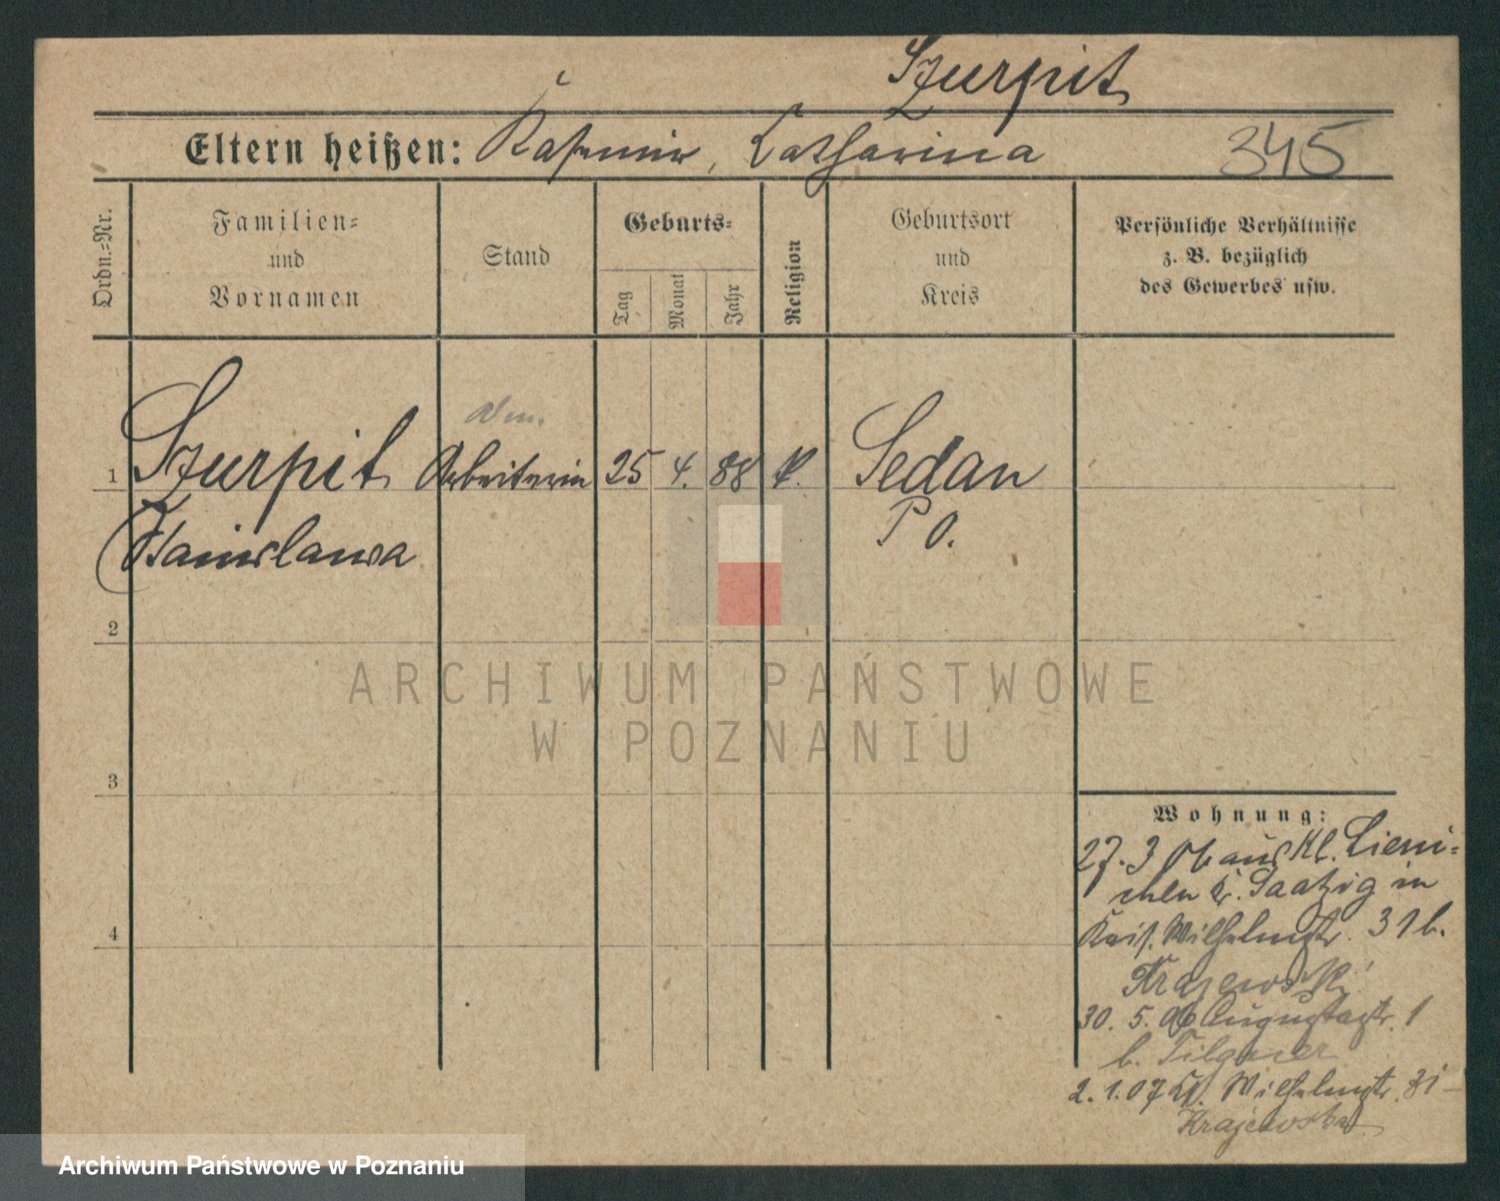 Szurpit
Eltern heißen: Kasimir, Catharina
345
Ordn.=Nr.
Familien=
und
Vornamen
Stand
Geburts=
Tag
Monat
Jahr
Religion
Geburtsort
und
Kreis
Persönliche Verhältnisse
z. B. bezüglich
des Gewerbes usw.
1
Szurpit
Arbeiterin
25
4.
88
k.
Sedan
Stanislawa
P O.
2
3
4
Wohnung:
27. 3 06 aus Kl. Lieni=
chen Kr. Saatzig in
Kais. Wilhelmstr. 31 b.
Krajewski
30. 5. 06 Augustastr. 1
b. Tilgner
2. 1. 07 K. Wilhelmstr. 31
Krajewska
ARCHIWUM PAŃSTWOWE
W POZNANIU
Archiwum Państwowe w Poznaniu